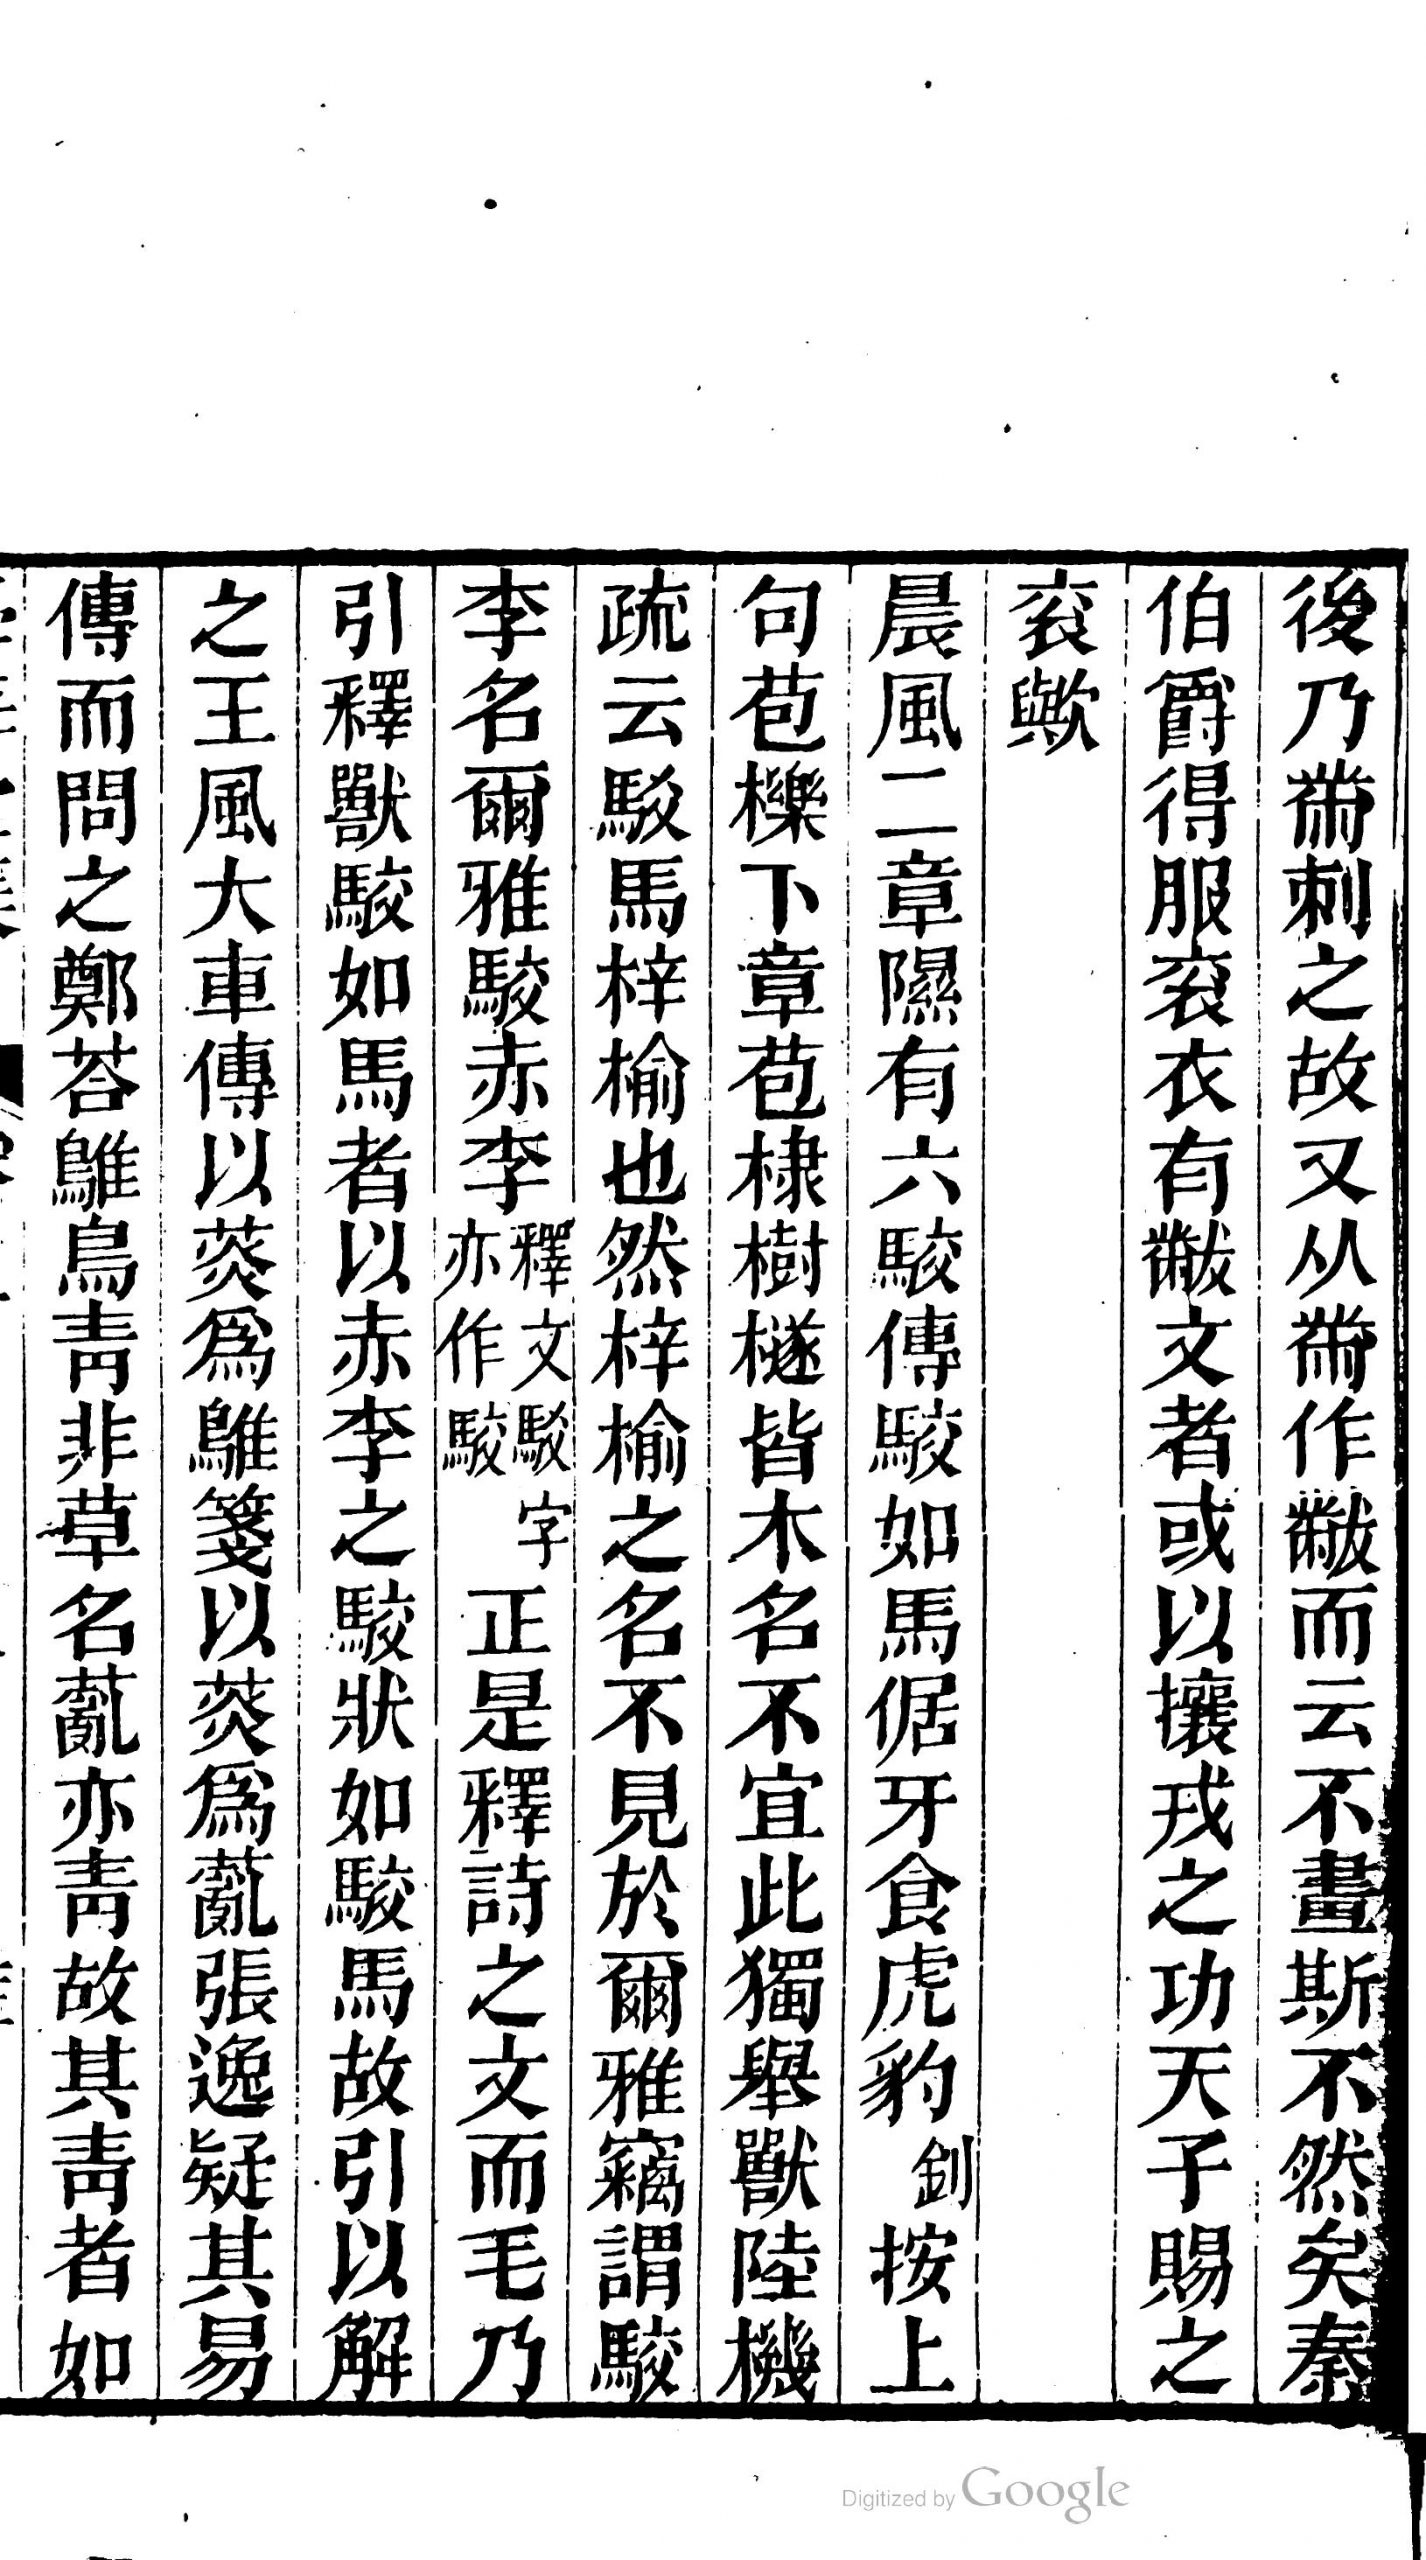 後乃黹刺之故又从黹作黻而云不畫斯不然矣秦
伯爵得服袞衣有黻文者或以攘戎之功天子賜之
袞歟
晨風二章隰有六駮傳駮如馬倨牙食虎豹釗按上
句苞櫟下章苞棣樹檖皆木名不宜此獨舉獸陸機
疏云駮馬梓榆也然梓榆之名不見於爾雅竊謂駮
李名爾雅駮赤李釋文駁字亦作駮正是釋詩之文而毛乃
引釋獸駮如馬者以赤李之駮狀如駮馬故引以解
之王風大車傳以菼爲鵻箋以菼爲薍張逸疑其易
傳而問之鄭荅鵻鳥青非草名薍亦青故其青者如
Digitized by Google